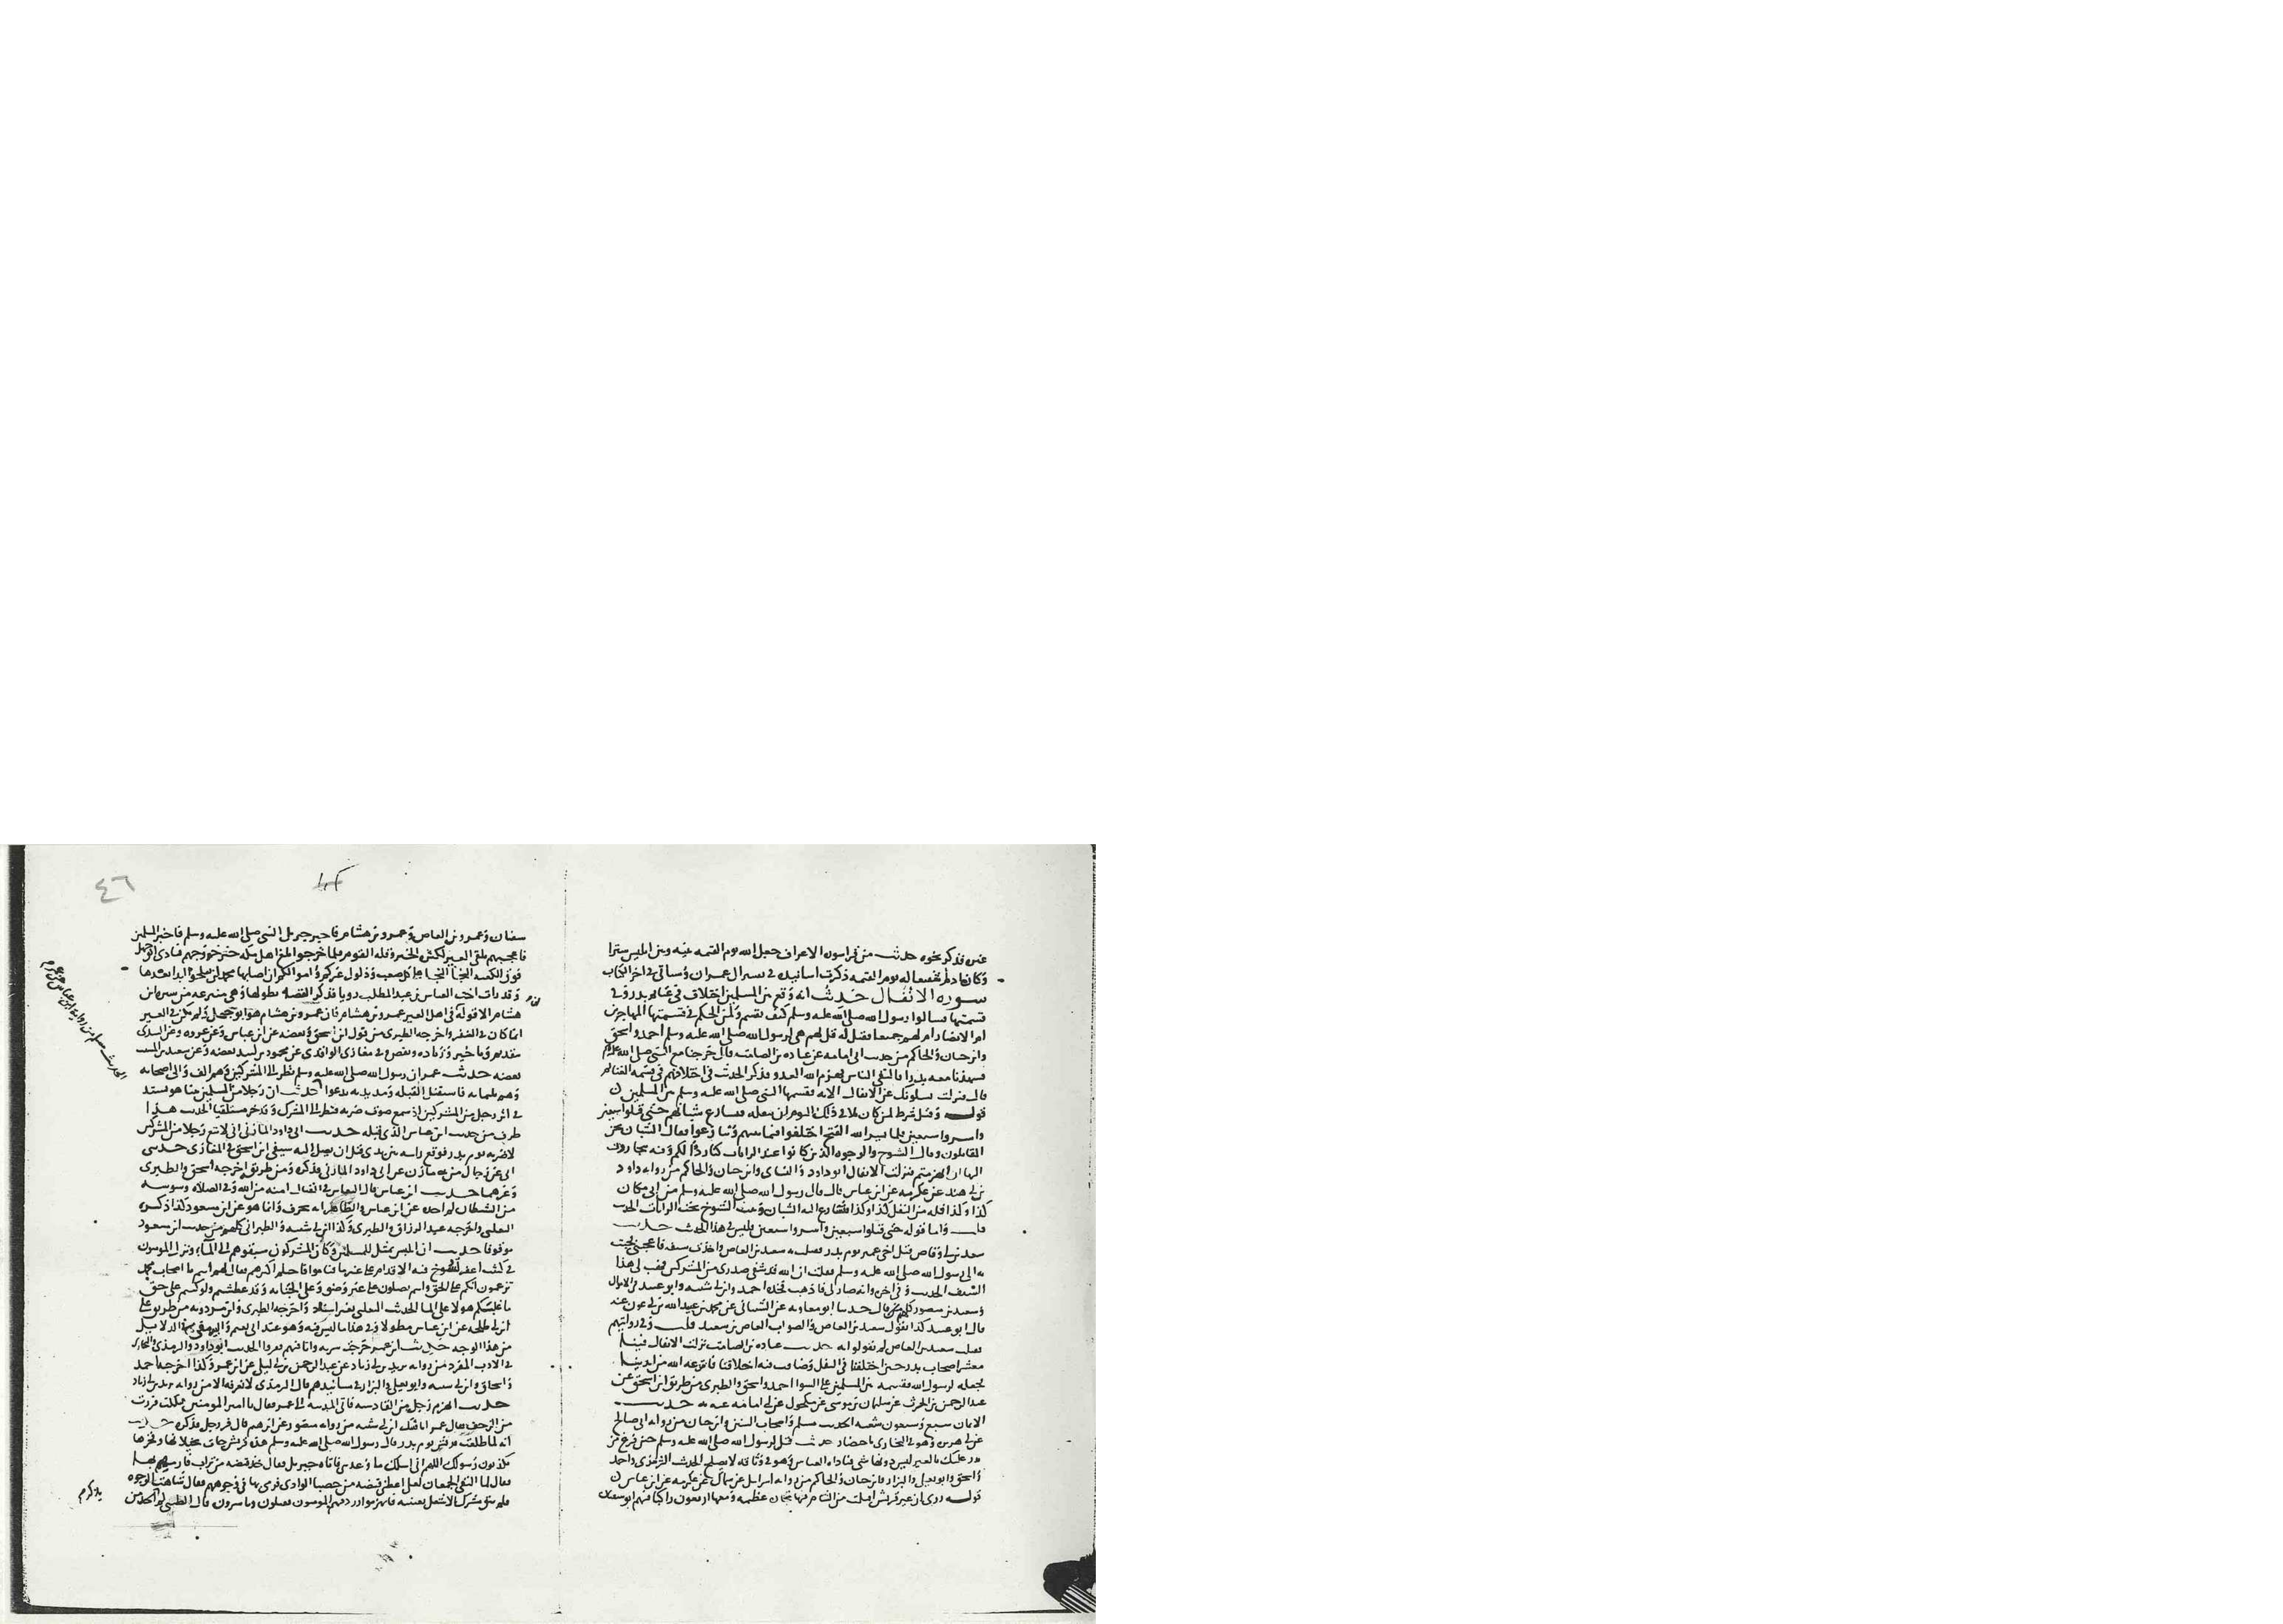 عنه فذكر نحوه حديث من قرا سورة الاعراف جعل الله يوم القيمة بينه وبين ابليس سترا
وكان ادم شفيعا له يوم القيمة ذكرت اسانيده في تفسير ال عمران وسياتي في اخر الكتاب
سورة الانفال حديث انه وقع بين المسلمين اختلاف في غنايم بدر وفي
قسمتها فسالوا رسول الله صلى الله عليه وسلم كيف تقسم ولمن الحكم في قسمتها اللمهاجرين
ام الانصار ام لهم جميعا فقيل له قل لهم هي لرسول الله صلى الله عليه وسلم احمد واسحق
وابن حبان والحاكم من حديث ابي امامة عن عبادة بن الصامت قال خرجنا مع النبي صلى الله عليه وسلم
فشهدنا معه بدرا فالتقى الناس فهزم الله العدو فذكر الحديث في اختلافهم في قسمة الغنايم
قال فنزلت يسلونك عن الانفال الاية فقسمها النبي صلى الله عليه وسلم بين المسلمين
قوله وقيل شرط لمن كان له بلا في ذلك اليوم ان ينفله فتسارع شبانهم حتى قتلوا سبعين
واسروا سبعين فلما يسر الله الفتح اختلفوا فيما بينهم وتنازعوا فقال الشبان نحن
المقاتلون وقال الشيوخ والوجوه الذين كانوا عند الرايات كنا ردءا لكم وفئة تنحازون
اليها ان انهزمتم فنزلت الانفال ابو داود والنساي وابن حبان والحاكم من رواية داود
بن ابي هند عن عكرمة عن ابن عباس قال قال رسول الله صلى الله عليه وسلم من اتى مكان
كذا وكذا فله من النفل كذا وكذا فتسارع اليه الشبان وثبت الشيوخ تحت الرايات الحديث
قلت واما قوله حتى قتلوا سبعين واسروا سبعين فليس في هذا الحديث حديث
سعد بن ابي وقاص قتل اخي عمير يوم بدر فقتلت به سعيد بن العاص واخذت سيفه فاعجبني فجئت
به الى رسول الله صلى الله عليه وسلم فقلت ان الله قد شفى صدري من المشركين فهب لي هذا
السيف الحديث وفي اخره وانه صار لي فاذهب فخذه احمد وابن ابي شيبة وابو عبيد في الاموال
وسعيد بن منصور كلهم قال حدثنا ابو معاوية عن الشيباني عن محمد بن عبيد الله بن ابي عون عنه
قال ابو عبيد كذا نقول سعيد بن العاص والصواب العاص بن سعيد قلت وفي روايتهم
فقتلت سعيد بن العاص لم يقولوا به حديث عبادة بن الصامت نزلت الانفال فينا
معشر اصحاب بدر حين اختلفنا في النفل وساءت فيه اخلاقنا فانتزعه الله من ايدينا
فجعله لرسول الله فقسمه بين المسلمين على السوا احمد واسحق والطبري من طريق ابن اسحق عن
عبد الرحمن بن الحرث عن سليمان بن موسى عن مكحول عن ابي امامة عنه به حديث
الايمان سبع وسبعون شعبة الحديث مسلم واصحاب السنن وابن حبان من رواية ابي صالح
عن ابي هريرة وهو في البخاري باختصار حديث قيل لرسول الله صلى الله عليه وسلم حين فرغ من
بدر عليك بالعير ليس دونها شي فناداه العباس وهو في وثاقه لا يصلح الحديث الترمذي واحمد
واسحق وابو يعلى والبزار وابن حبان والحاكم من رواية اسرايل عن سماك عن عكرمة عن ابن عباس
قوله روي ان عير قريش اقبلت من الشام فيها تجارة عظيمة ومعها اربعون راكبا فيهم ابو سفيان
٤٦
سفيان وعمرو بن العاص وعمرو بن هشام فاخبر جبريل النبي صلى الله عليه وسلم فاخبر المسلمين
فاعجبهم تلقي العير لكثرة الخير وقلة القوم فلما خرجوا بلغ اهل مكة خبر خروجهم فنادى ابو جهل
فوق الكعبة النجا النجا على كل صعب وذلول عيركم واموالكم ان اصابها محمد لن تفلحوا بعدها ابدا
وقد رات اخت العباس بن عبد المطلب رويا فذكر القصة بطولها وهي منتزعة من سيرة ابن
هشام الا قوله في اهل العير عمرو بن هشام فان عمرو بن هشام هو ابو جهل ولم يكن في العير
انما كان في النفير واخرجه الطبري من قول ابن اسحق وبعضه عن ابن عباس وعن عروة وعن السدي
بتقديم وتاخير وزيادة ونقص وفي مغازي الواقدي عن محمود بن لبيد بعضه وعن سعيد بن المسيب
بعضه حديث عمر ان رسول الله صلى الله عليه وسلم نظر الى المشركين وهم الف والى اصحابه
وهم ثلثماية فاستقبل القبلة ومد يديه يدعوا حديث ان رجلا من المسلمين بينا هو يشتد
في اثر رجل من المشركين اذ سمع صوت ضربة فنظر الى المشرك وقد خر مستلقيا الحديث هذا
طرف من حديث ابن عباس الذي قبله حديث ابي داود المازني اني لاتبع رجلا من المشركين
لاضربه يوم بدر فوقع راسه بين يدي قبل ان يصل اليه سيفي ابن اسحق في المغازي حدثني
ابي عن رجال من بني مازن عن ابي داود المازني فذكره ومن طريق اخرجه اسحق والطبري
وغيرهما حديث ابن عباس قال النعاس في القتال امنة من الله وفي الصلاة وسوسة
من الشيطان لم اجده عن ابن عباس والظاهر انه تحرف وانما هو عن ابن مسعود كذا ذكره
الثعلبي واخرجه عبد الرزاق والطبري وكذا ابن ابي شيبة والطبراني كلهم من حديث ابن مسعود
موقوفا حديث ان ابليس تمثل للمسلمين وكان المشركون سبقوهم الى الماء ونزل المومنون
في كثيب اعفر تسوخ فيه الاقدام على غير ما فناموا فاحتلم اكثرهم فقال لهم انتم يا اصحاب محمد
تزعمون انكم على الحق وانتم تصلون على غير وضو وعلى الجنابة وقد عطشتم ولو كنتم على حق
ما غلبكم هولا على الما الحديث الثعلبي بغير اسناد واخرجه الطبري وابن مردويه من طريق علي
ابن ابي طلحة عن ابن عباس مطولا وفي هذا ما ليس فيه وهو عند ابي نعيم والبيهقي في الدلايل
من هذا الوجه حديث ابن عمر خرجت سرية وانا فيهم ففروا الحديث ابو داود والترمذي والبخاري
في الادب المفرد من رواية يزيد بن ابي زياد عن عبد الرحمن بن ابي ليلى عن ابن عمر وكذا اخرجه احمد
واسحاق وابن ابي شيبة وابو يعلى والبزار في مسانيدهم قال الترمذي لا نعرفه الا من رواية يزيد بن ابي زياد
حديث انهزم رجل من القادسية فاتى المدينة الى عمر فقال يا امير المومنين هلكت فررت
من الزحف فقال عمر انا فئتك ابن ابي شيبة من رواية منصور عن ابرهيم قال فر رجل فذكره حديث
انه لما طلعت قريش يوم بدر قال رسول الله صلى الله عليه وسلم هذه قريش جات بخيلايها وفخرها
يكذبون رسولك اللهم اني اسلك ما وعدتني فاتاه جبريل فقال خذ قبضة من تراب فارميهم بها
فقال لما التقى الجمعان لعلي اعطني قبضة من حصبا الوادي فرمى بها في وجوههم فقال شاهت الوجوه
فلم يبق مشرك الا شغل بعينيه فانهزموا وردفهم المومنون يقتلون وياسرون قال الطيبي لم